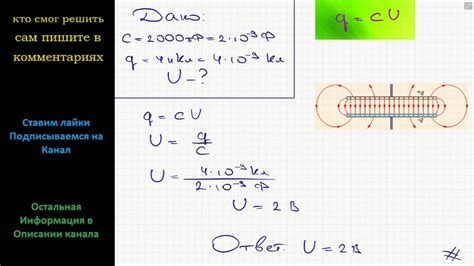 кто смог решить
сам пишите в
комментариях
Ставим лайки
Подписываемся на
Канал
Остальная
Информация в
Описании канала
Дано:
C = 2000пФ = 2·10⁻⁹Ф
q = 4нКл = 4·10⁻⁹ Кл
U - ?
q = cU
U = q/C
U = 4·10⁻⁹Кл / 2·10⁻⁹ Ф
U = 2 В
Ответ: U = 2В
q = cU
+q
-q